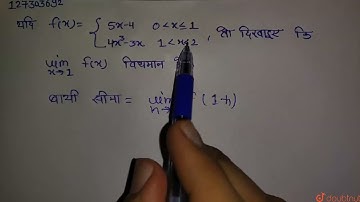 127303692
यदि f(x)= { 5x-4 0<x≤1
4x³-3x 1<x≤2 , तो दिखाइए कि
lim x→1 f(x) विद्यमान
बायी सीमा = lim h→ (1-h)
doubtnut